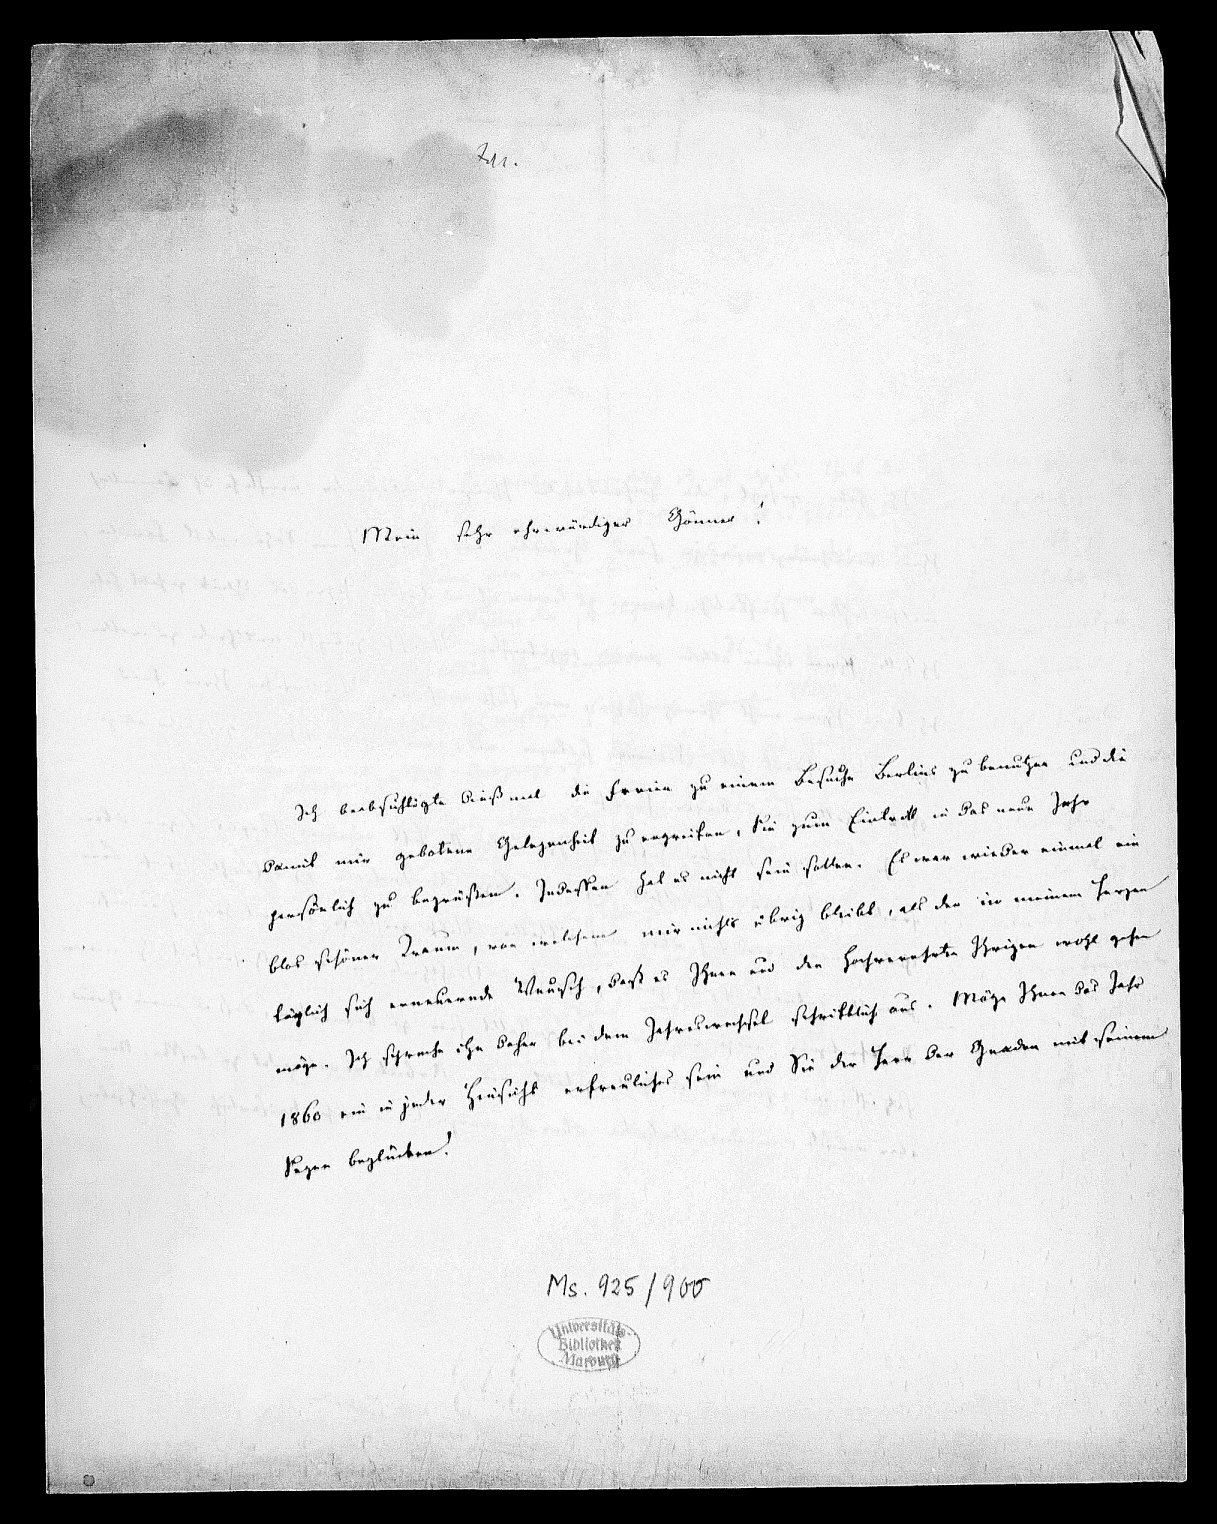 Mein sehr ehrwürdiger Gönner!
Ich beabsichtigte diesmal die Ferien zu einem Besuche Berlins zu benutzen und die
damit mir gebotene Gelegenheit zu ergreifen, Sie zum Eintritt in das neue Jahr
persönlich zu begrüßen. Indessen hat es nicht sein sollen. Es war wieder einmal ein
blos schöner Traum, von welchem mir nichts übrig bleibt, als der in meinem Herzen
täglich sich erneuernde Wunsch, daß es Ihnen und den hochverehrten Ihrigen wohl gehen
möge. Ich spreche ihn daher bei dem Jahreswechsel schriftlich aus. Möge Ihnen das Jahr
1860 ein in jeder Hinsicht erfreuliches sein und Sie der Herr der Gnaden mit seinem
Segen beglücken!
Ms. 925/900
Universitäts-
Bibliothek
Marburg